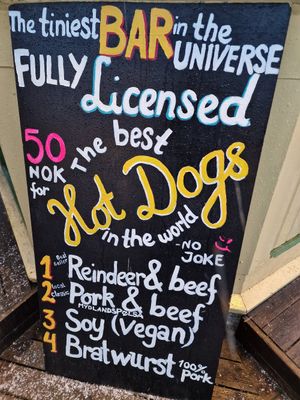 The tiniest BAR in the UNIVERSE
FULLY Licensed
50 NOK for
The best
Hot Dogs
in the world
-NO JOKE
1 Best seller Reindeer & beef
2 Local classic Pork & beef
MYDLANDSPØLSA
3 Soy (vegan)
4 Bratwurst 100% pork